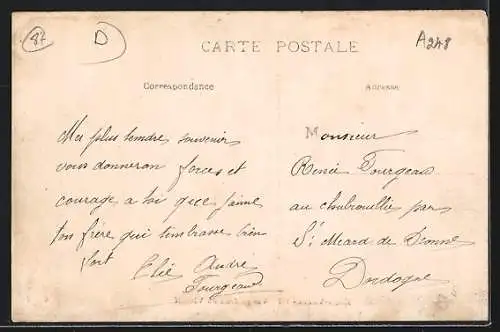 87
D
A248
CARTE POSTALE
Correspondance
Adresse
Mes plus tendre souvenirs
vous donneron forces et
courage a toi que j'aime
ton frère qui t'embrasse bien
fort Elie André
Fourgeaud
Monsieur
René Fourgeaud
au par
St Meard de Dronne
Dordogne